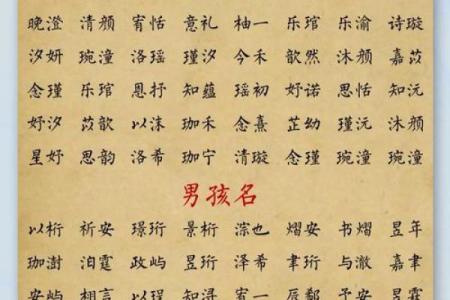 晚澄 清颜 宥恬 意礼 柚一 乐琯 乐渝 诗璇
汐妍 琬潼 洛瑶 瑾汐 今禾 歆然 沐颜 嘉苡
念瑾 乐琯 恩抒 知蕴 瑶初 妤诺 思恬 知沅
妤汐 苡歆 以沫 珈禾 念熹 芷幼 瑾沅 沐颜
星妤 思韵 洛希 珈宁 清璇 念瑾 琬潼 琬潼
男孩名
以桁 祈安 璟珩 景桁 淙也 熠安 书熠 昱年
珈澍 洎霆 政屿 昱珩 泽希 聿珩 与澈 嘉懿
屿安 栩言 以珵 知浔 辰鄞 予安 昱霖